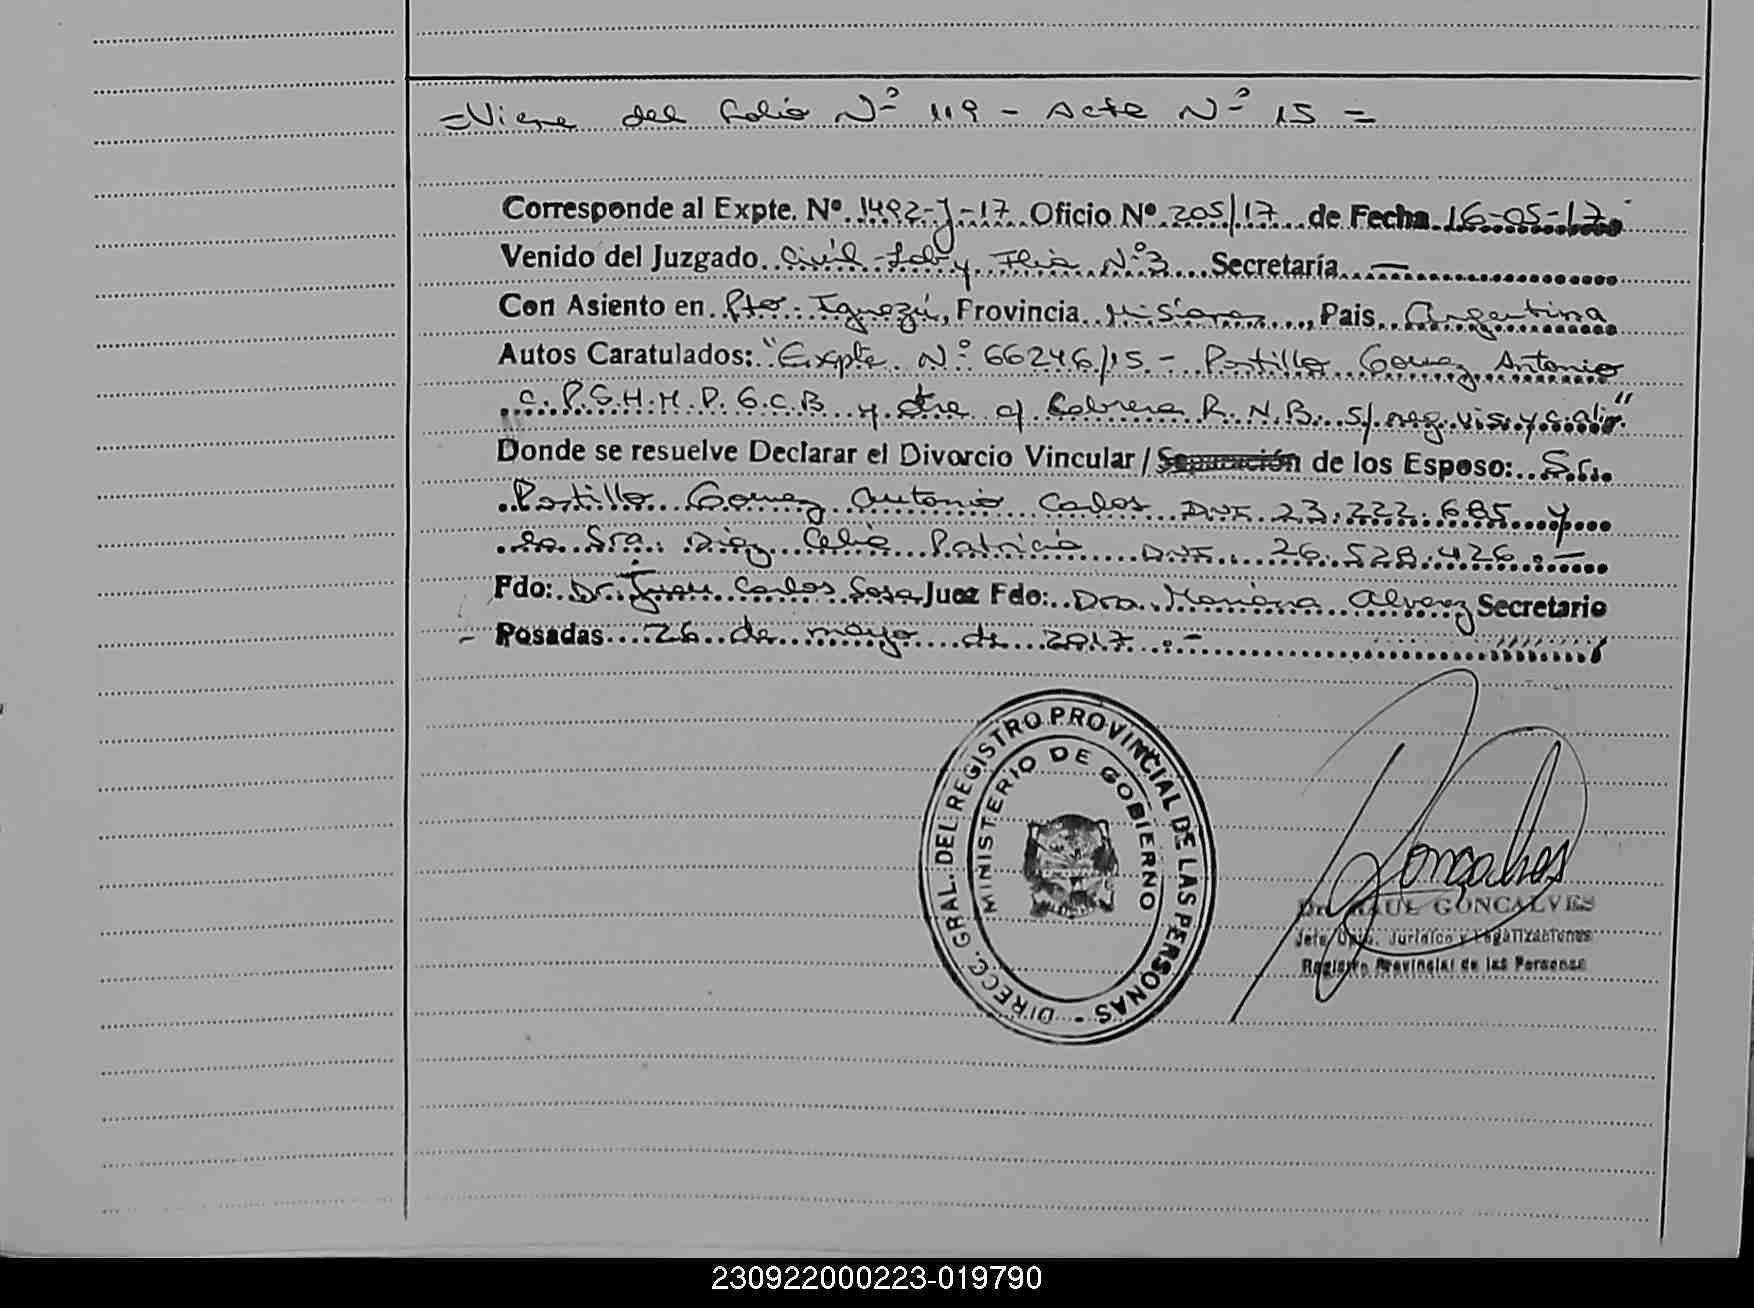 =Viene del Folio Nº 119 - Acta Nº 15 =
Corresponde al Expte. Nº. 1492-J-17 Oficio Nº 205/17 de Fecha 16-05-17
Venido del Juzgado Civil-Lab y Flia Nº3 Secretaría —
Con Asiento en Pto. Iguazú, Provincia Misiones, Pais Argentina
Autos Caratulados: "Expte. Nº 66246/15 - Portillo Gomez Antonio
C. P.S.H.M.P.G.C.B y otra c/ Cabrera R.N.B. s/ reg. vis. y c. alim"
Donde se resuelve Declarar el Divorcio Vincular / Separación de los Esposo: Sr.
Portillo Gomez Antonio Carlos DNI 23.222.685 y
la Sra. Diaz Celia Patricia DNI. 26.528.426.-
Fdo: Dr. Juan Carlos Sosa Juez Fdo: Dra. Mariana Alvarez Secretario
- Posadas 26 de mayo de 2017.-
DIRECC. GRAL. DEL REGISTRO PROVINCIAL DE LAS PERSONAS -
MINISTERIO DE GOBIERNO
Goncalves
Dr. RAUL GONCALVES
Jefe Dpto. Jurídico y Legalizaciones
Registro Provincial de las Personas
230922000223-019790